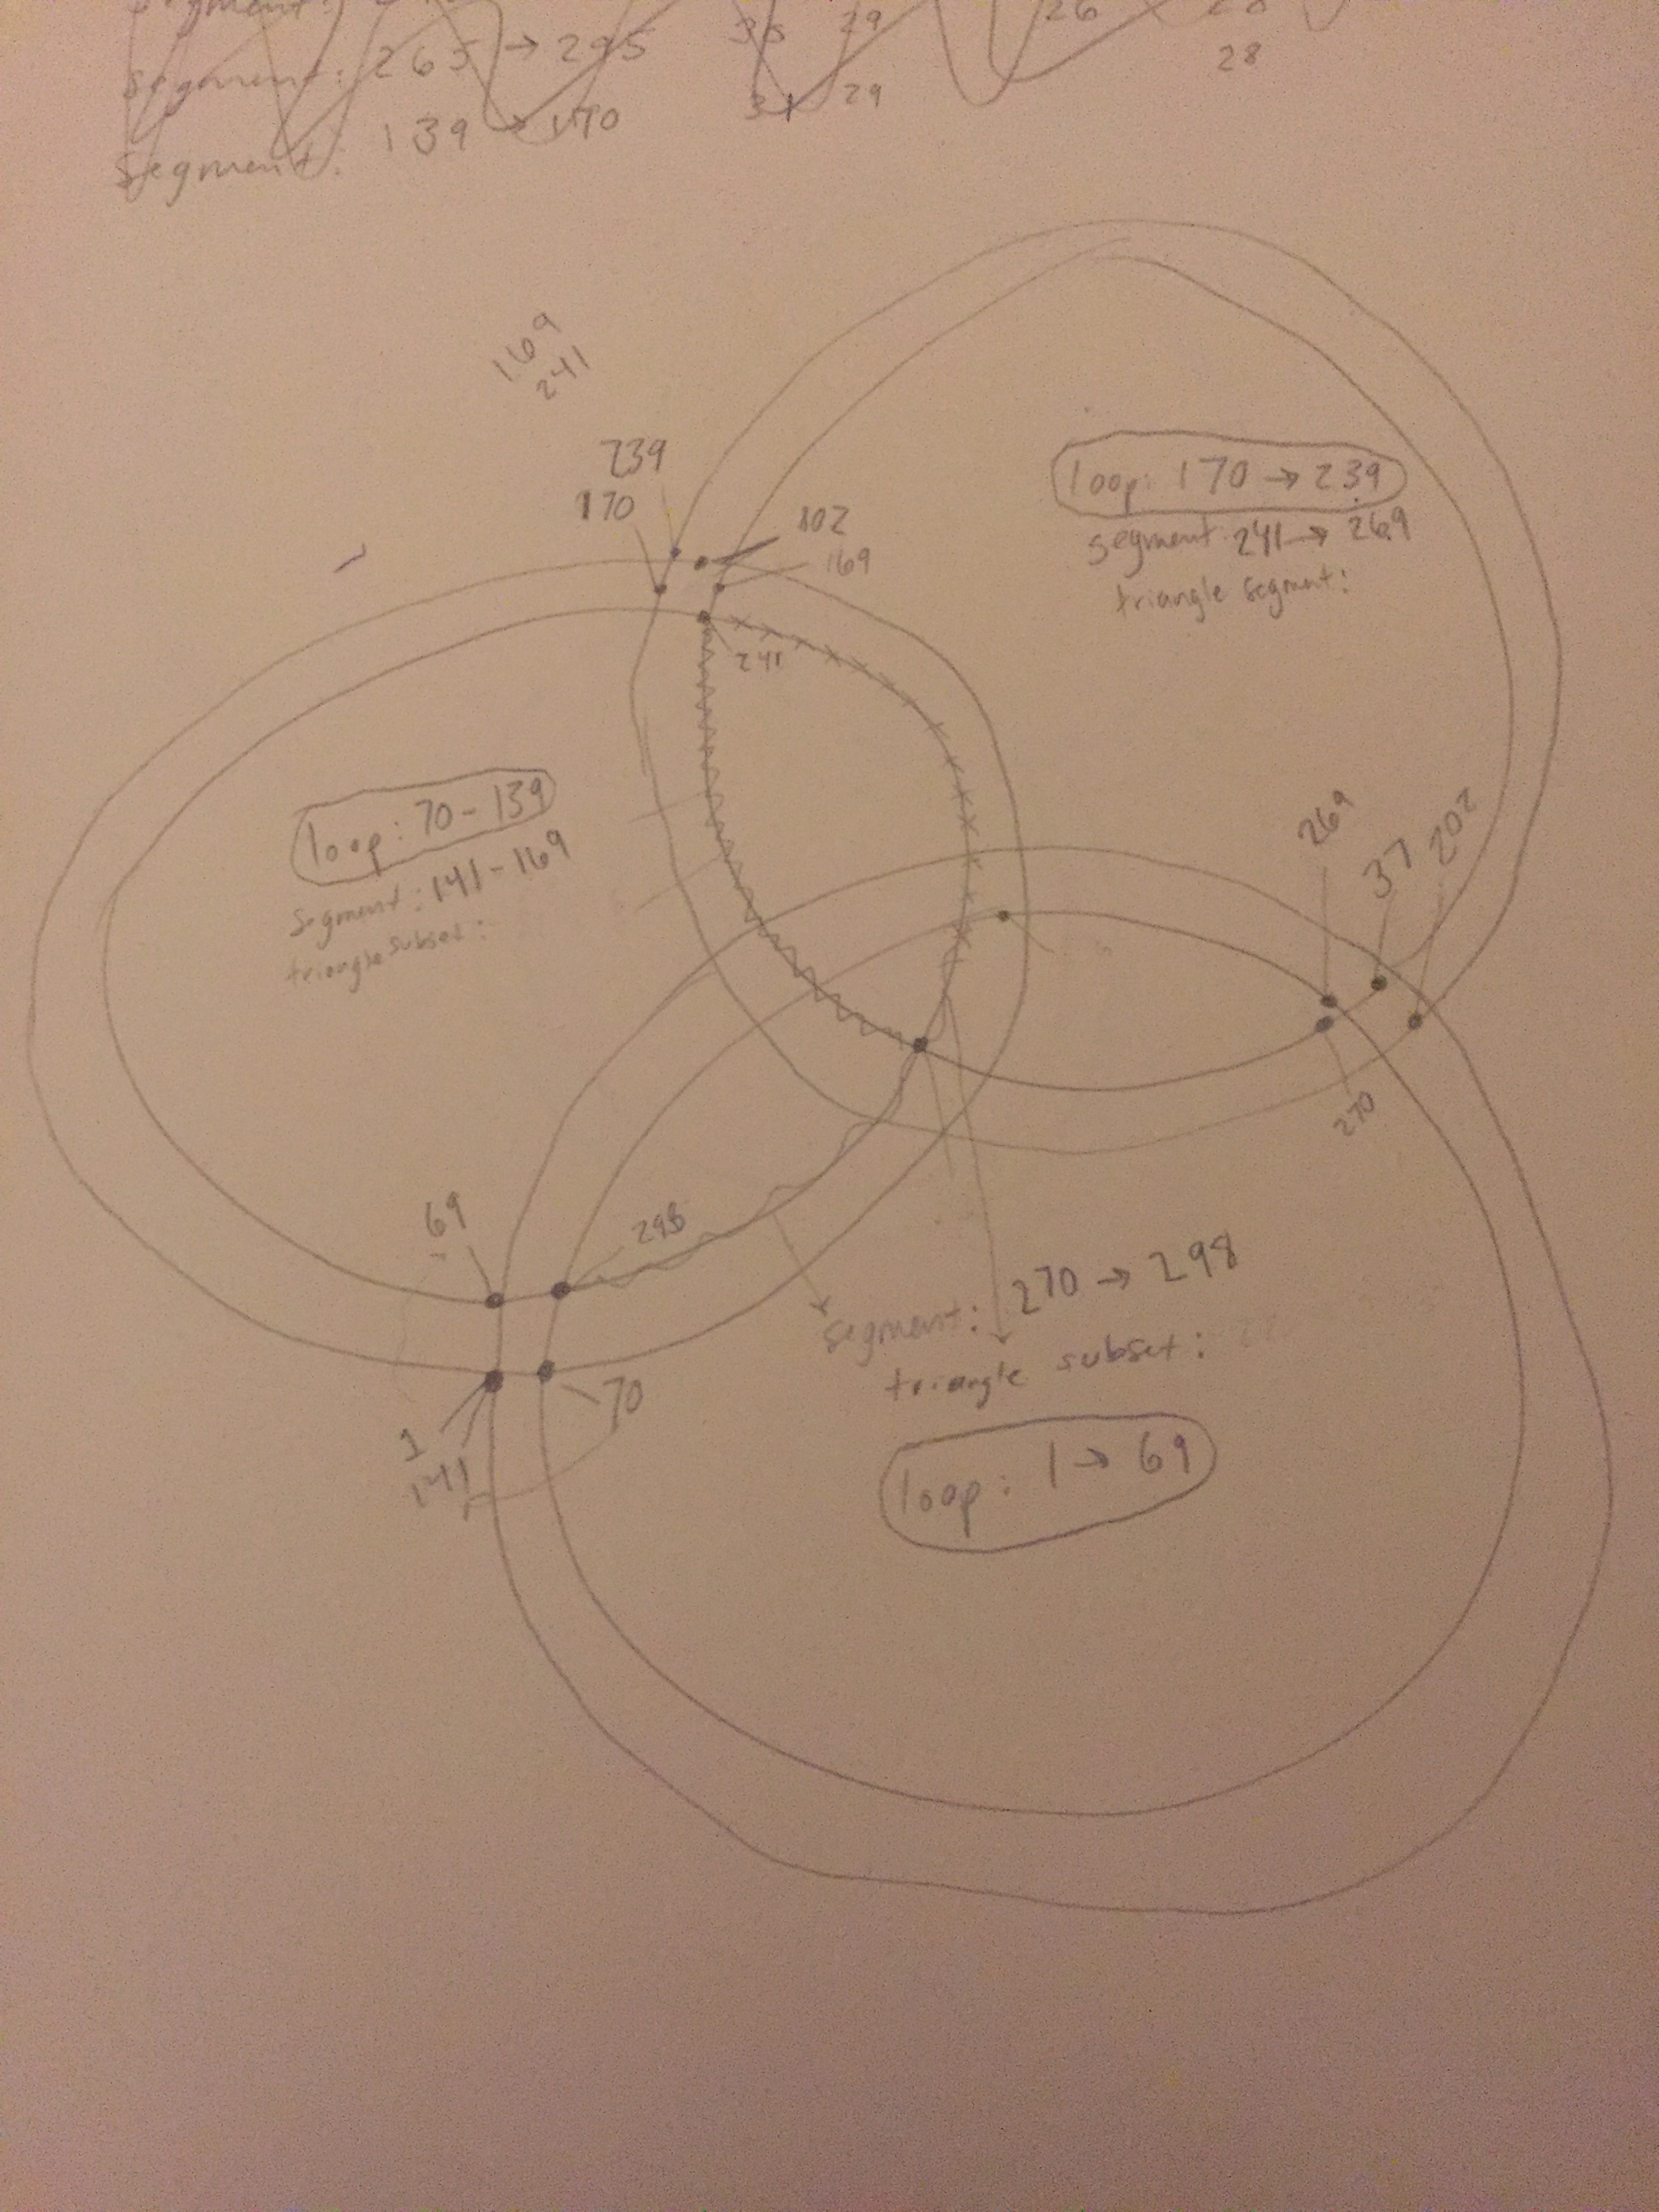 segment:
segment: 265 → 295
35 29
26
28
31 29
28
segment: 139 → 170
169
241
239
170
102
169
241
loop: 170 → 239
segment 241 → 269
triangle segment:
loop: 70 - 139
segment: 141 - 169
triangle subset:
269
37
202
270
69
298
segment: 270 → 298
triangle subset:
70
1
141
loop: 1 → 69